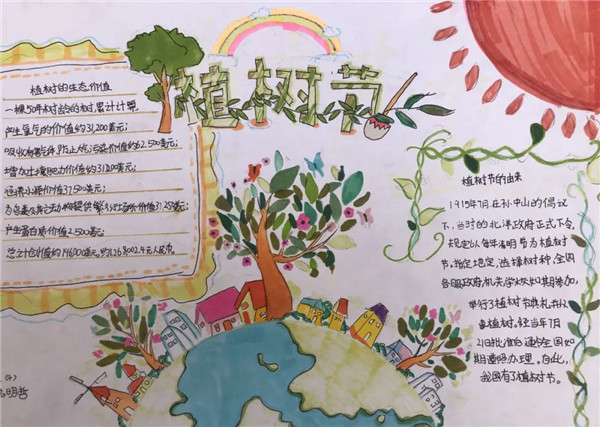 植树节
植树的生态价值
一棵50年树龄的树,累计计算,
产生氧气的价值约31,200美元;
吸收有毒气体,防止大气污染价值约62,500美元;
增加土壤肥力价值约31,200美元;
涵养水源价值37,500美元;
为鸟类及其它动物提供繁衍场所价值31,250美元;
产生蛋白质价值2,500美元。
植树节的由来
1915年7月,在孙中山的倡议
下,当时的北洋政府正式下令,
规定以每年清明节为植树
节,指定地点,选择树种,全国
各级政府,机关,学校如期参加,
举行了植树节典礼并从
事植树。经当年7月
21日批准后通令全国如
期遵照办理。自此,
我国有了植树节。